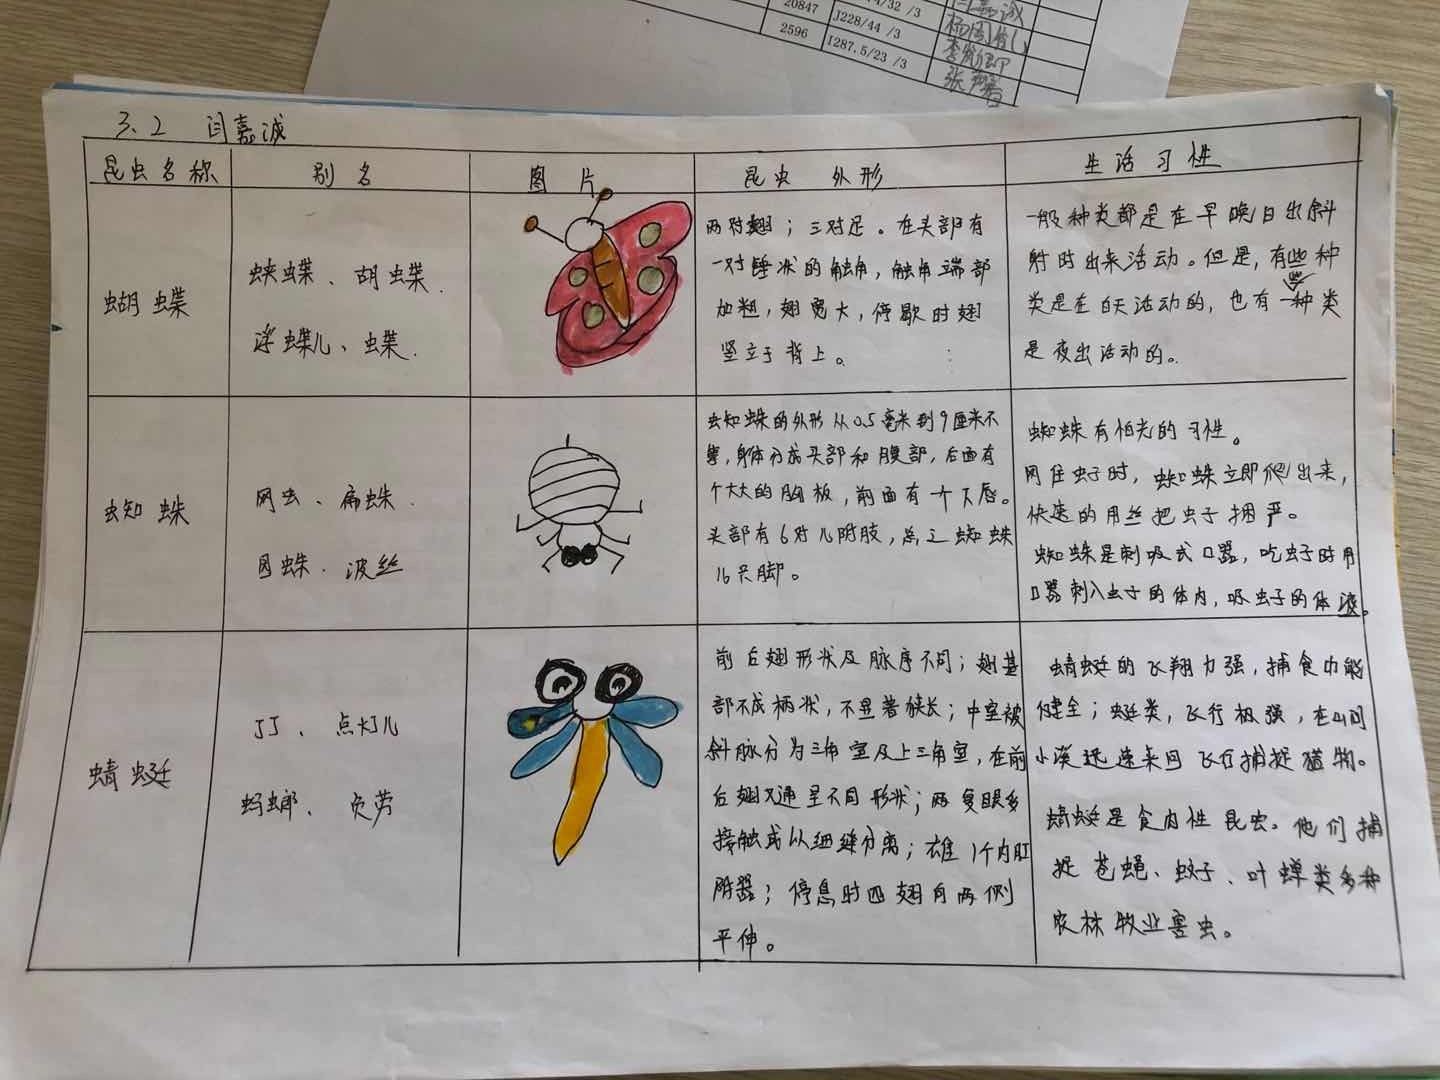 20847
J228/44 /3
2596
I287.5/23 /3
3.2 闫嘉诚
昆虫名称 别名 图片 昆虫 外形 生活习性
蝴蝶
蛱蝶、胡蝶.
浮蝶儿、蝶.
两对翅；三对足。在头部有
一对锤状的触角，触角端部
加粗，翅宽大，停歇时翅
竖立于背上。
一般种类都是在早晚日出斜
射时出来活动。但是，有些种
类是在白天活动的，也有一种类
些
是夜出活动的。
蜘蛛
网虫、扁蛛.
园蛛.波丝
蜘蛛的外形从0.5毫米到9厘米不
等，身体分成头部和腹部，后面有
个大大的胸板，前面有一个下唇。
头部有6对儿附肢，总之蜘蛛
儿只脚。
蜘蛛有怕光的习性。
网住虫子时，蜘蛛立即爬出来，
快速的用丝把虫子捆严。
蜘蛛是刺吸式口器，吃虫子时用
口器刺入虫子的体内，吸虫子的体液。
蜻蜓
丁丁、点灯儿
蚂螂、负劳
前后翅形状及脉序不同；翅基
部不成柄状，不显著狭长；中室被
斜脉分为三角室及上三角室，在前
后翅又通呈不同形状；两复眼多
接触或以细缝分离；雄1个内肛
附器；停息时四翅向两侧
平伸。
蜻蜓的飞翔力强，捕食功能
健全；蜓类，飞行极强，在山间
小溪迅速来回飞行捕捉猎物。
蜻蜓是食肉性昆虫。他们捕
捉苍蝇、蚊子、叶蝉类多种
农林牧业害虫。